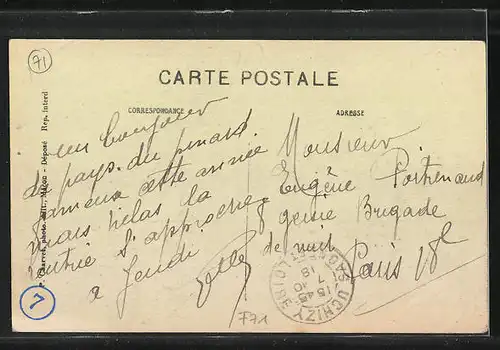 71
CARTE POSTALE
CORRESPONDANCE
ADRESSE
un bonjour
du pays du pinard.
fameux cette année
mais hélas la
rentrée s'approche,
a Jeudi
Monsieur
Eugène
genie Brigade
de nuit
Paris 18e
UCHIZY
15 45
7 10
18
SAONE ET LOIRE
F71
7
Charvet, photo-édit., Mâcon - Déposé Rep. interd